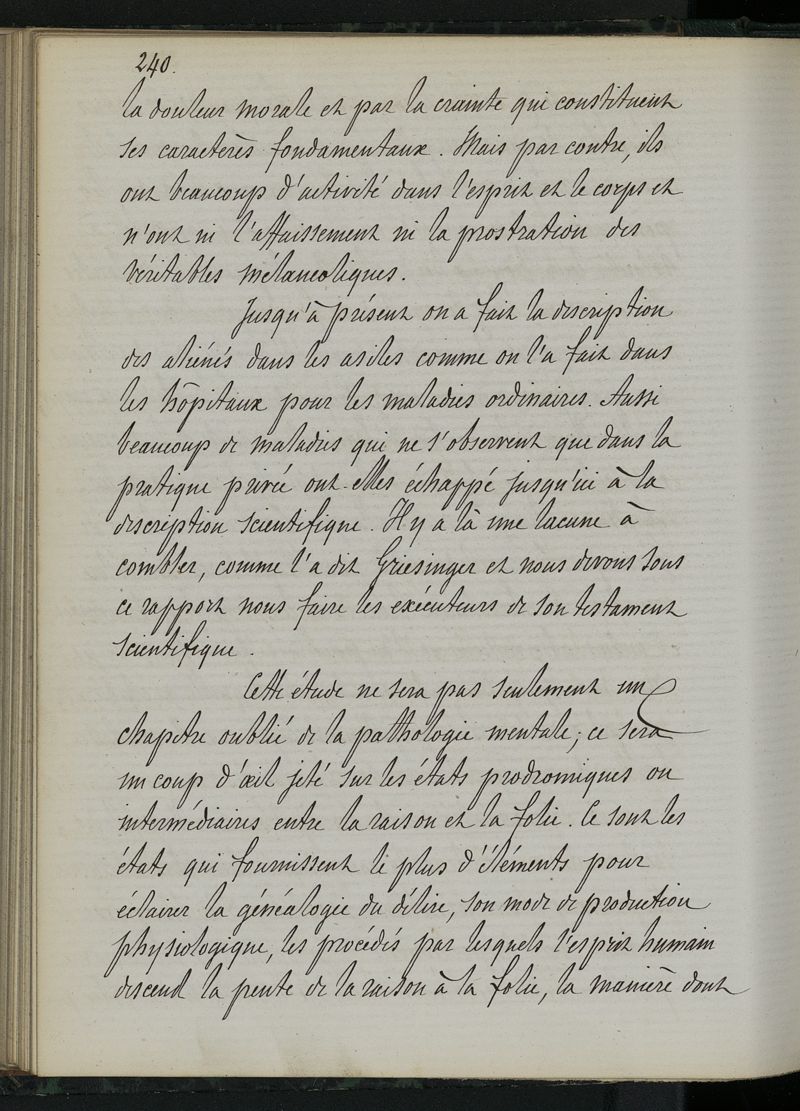 240.
la douleur morale et par la crainte qui constituent
ses caractères fondamentaux. Mais par contre, ils
ont beaucoup d'activité dans l'esprit et le corps et
n'ont ni l'affaissement ni la prostration des
véritables mélancoliques.
Jusqu'à présent on a fait la description
des aliénés dans les asiles comme on l'a fait dans
les hôpitaux pour les maladies ordinaires. Aussi
beaucoup de maladies qui ne s'observent que dans la
pratique privée ont-elles échappé jusqu'ici à la
description scientifique. Il y a là une lacune à
combler, comme l'a dit Griesinger et nous devons sous
ce rapport nous faire les exécuteurs de son testament
scientifique.
Cette étude ne sera pas seulement un
chapitre oublié de la pathologie mentale; ce sera
un coup d'œil jeté sur les états prodromiques ou
intermédiaires entre la raison et la folie. Ce sont les
états qui fournissent le plus d'éléments pour
éclairer la généalogie du délire, son mode de production
physiologique, les procédés par lesquels l'esprit humain
descend la pente de la raison à la folie, la manière dont